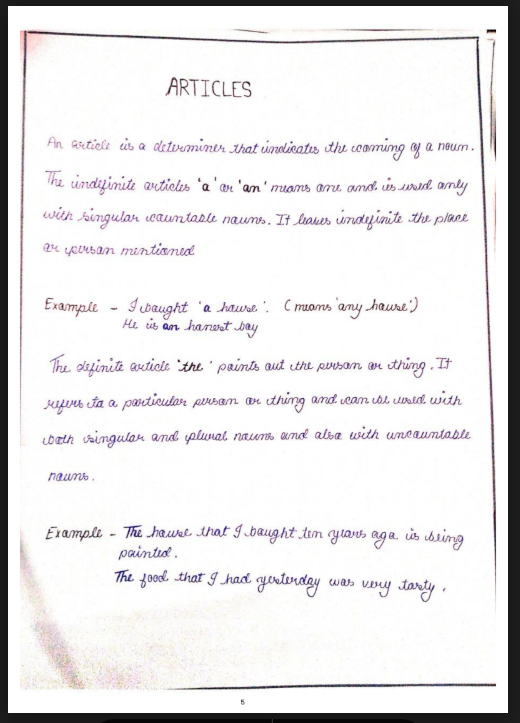 ARTICLES
An article is a determiner that indicates the coming of a noun.
The indefinite articles 'a' or 'an' means one and is used only
with singular countable nouns. It leaves indefinite the place
or person mentioned
Example - I bought 'a house'. (means 'any house')
He is an honest boy
The definite article 'the' points out the person or thing. It
refers to a particular person or thing and can be used with
both singular and plural nouns and also with uncountable
nouns.
Example - The house that I bought ten years ago is being
painted.
The food that I had yesterday was very tasty.
5